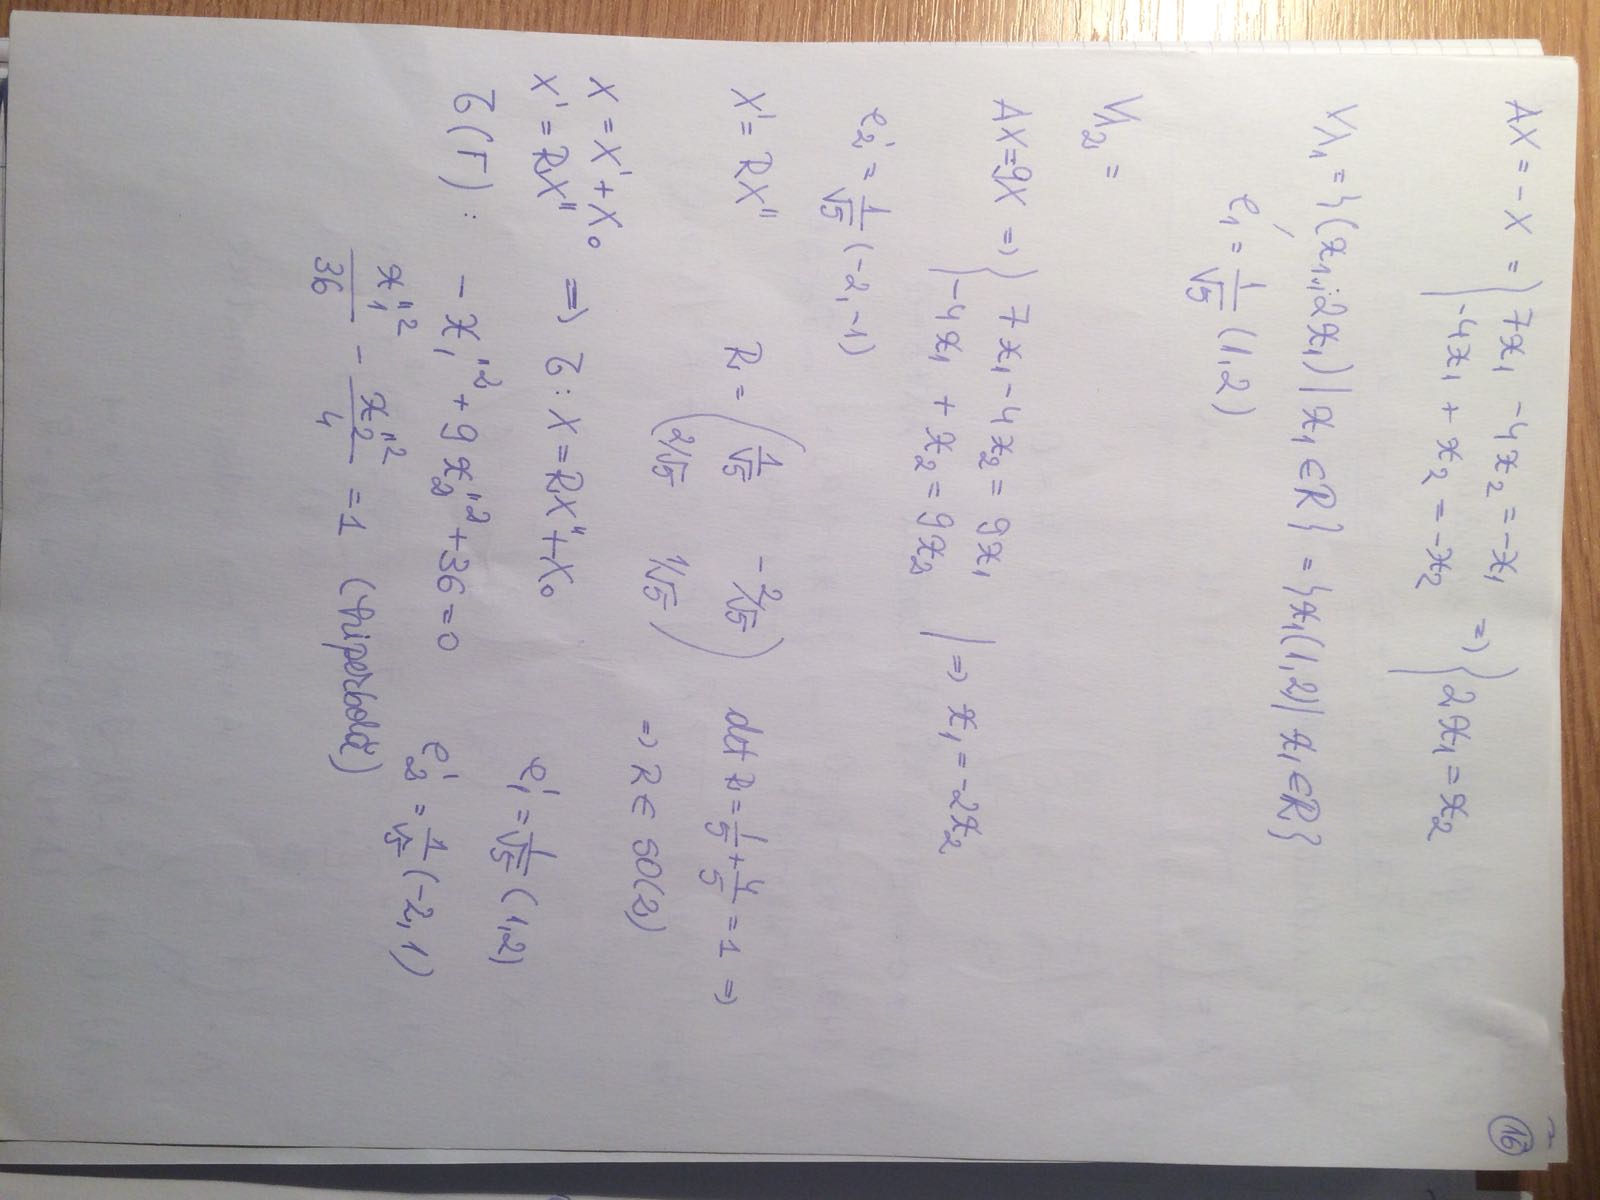 16
AX = -X = { 7x₁ - 4x₂ = -x₁
-4x₁ + x₂ = -x₂ => { 2x₁ = x₂
Vλ₁ = {(x₁, 2x₁) | x₁ ∈ R} = {x₁(1,2) | x₁ ∈ R}
e₁' = 1/√5 (1,2)
Vλ₂ =
AX = 9X => { 7x₁ - 4x₂ = 9x₁
-4x₁ + x₂ = 9x₂ | => x₁ = -2x₂
e₂' = 1/√5 (-2,-1)
X' = RX'' R = ( 1/√5 -2/√5 det R = 1/5 + 4/5 = 1 =>
2/√5 1/√5 ) => R ∈ SO(2)
X = X' + X₀
X' = RX'' => τ: X = RX'' + X₀ e₁' = 1/√5 (1,2)
τ(Γ): - x₁''² + 9x₂''² + 36 = 0 e₂' = 1/√5 (-2,1)
x₁''²/36 - x₂''²/4 = 1 (hiperbolă)